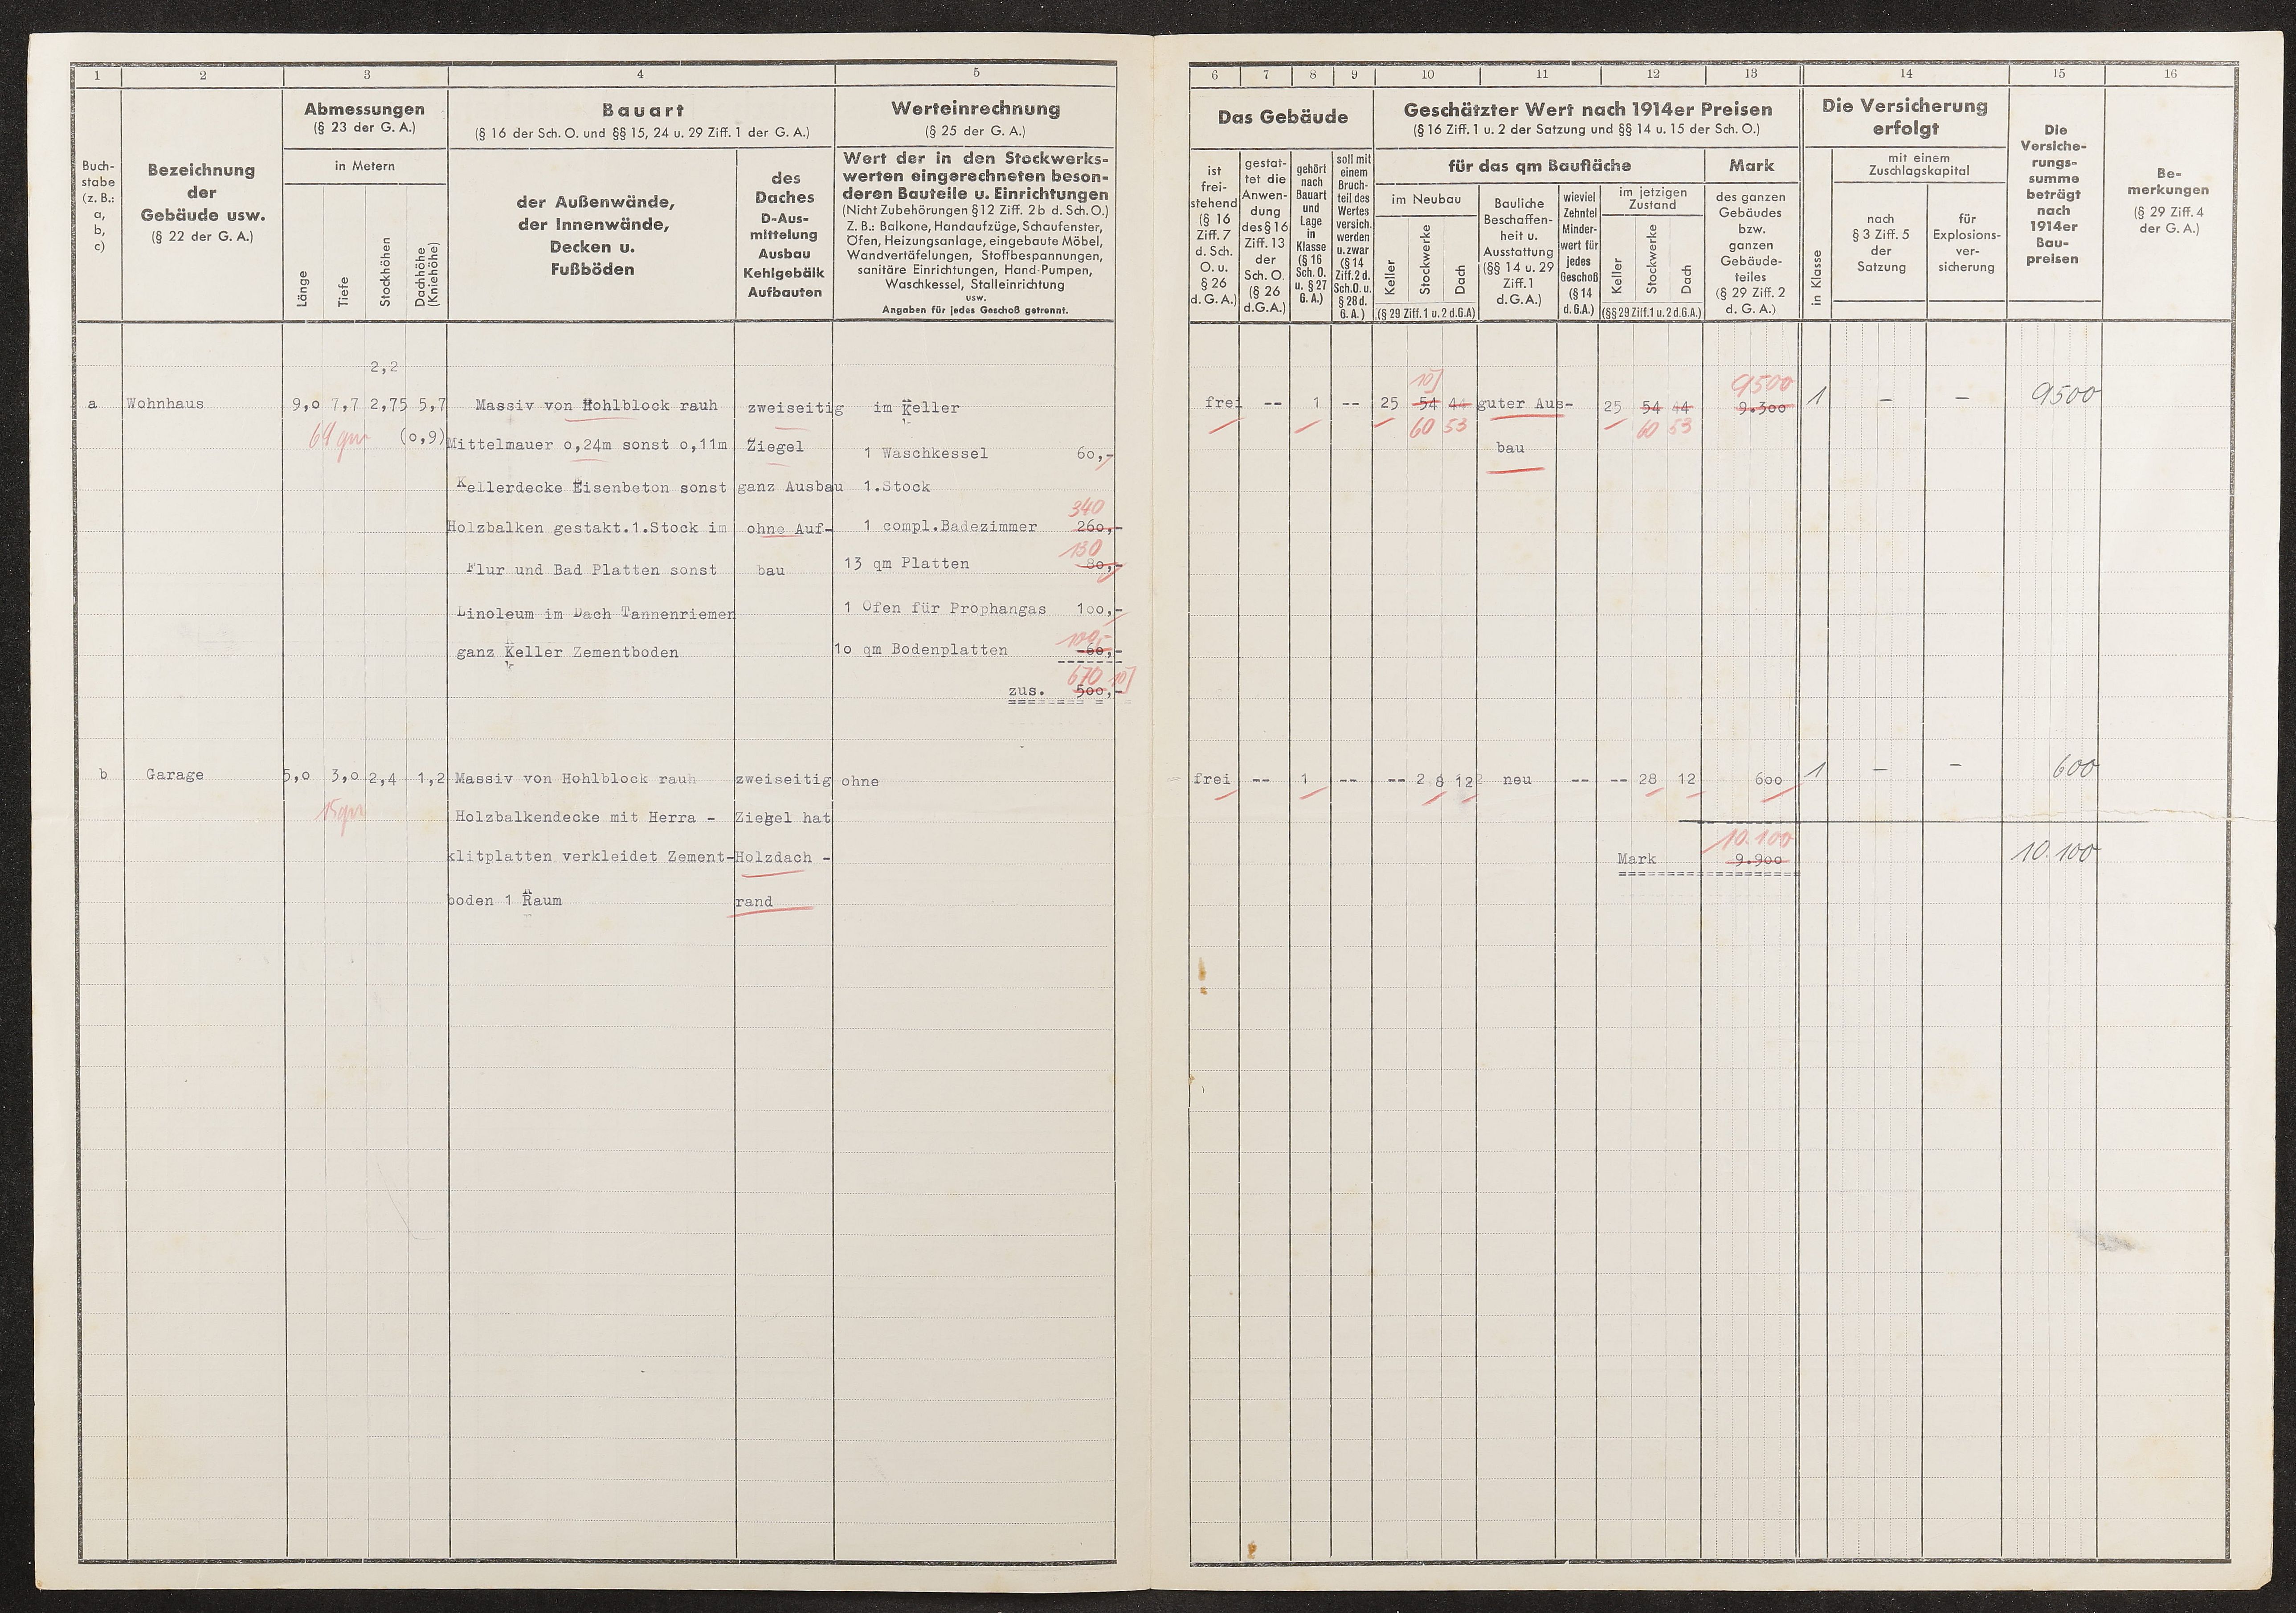 1 2 3 4 5
Buch-
stabe
(z. B.:
a,
b,
c)
Bezeichnung
der
Gebäude usw.
(§ 22 der G. A.)
Abmessungen
(§ 23 der G. A.)
in Metern
Länge
Tiefe
Stockhöhen
Dachhöhe
(Kniehöhe)
Bauart
(§ 16 der Sch. O. und §§ 15, 24 u. 29 Ziff. 1 der G. A.)
der Außenwände,
der Innenwände,
Decken u.
Fußböden
des
Daches
D-Aus-
mittelung
Ausbau
Kehlgebälk
Aufbauten
Werteinrechnung
(§ 25 der G. A.)
Wert der in den Stockwerks-
werten eingerechneten beson-
deren Bauteile u. Einrichtungen
(Nicht Zubehörungen § 12 Ziff. 2b d. Sch. O.)
Z. B.: Balkone, Handaufzüge, Schaufenster,
Öfen, Heizungsanlage, eingebaute Möbel,
Wandvertäfelungen, Stoffbespannungen,
sanitäre Einrichtungen, Hand-Pumpen,
Waschkessel, Stalleinrichtung
usw.
Angaben für jedes Geschoß getrennt.
2,2
a Wohnhaus 9,0 7,7 2,75 5,7 Massiv von Hohlblock rauh zweiseitig im Keller
(0,9) Mittelmauer 0,24m sonst 0,11m Ziegel 1 Waschkessel 60,-
Kellerdecke Eisenbeton sonst ganz Ausbau 1.Stock
340
Holzbalken gestakt.1.Stock im ohne Auf- 1 compl.Badezimmer 260,-
130
Flur und Bad Platten sonst bau 13 qm Platten 80,-
Linoleum im Dach Tannenriemen 1 Ofen für Prophangas 100,-
100,-
ganz Keller Zementboden 10 qm Bodenplatten 60,-
670
zus. 500,-
b Garage 5,0 3,0 2,4 1,2 Massiv von Hohlblock rauh zweiseitig ohne
15 qm Holzbalkendecke mit Herra - Ziegel hat
klitplatten verkleidet Zement- Holzdach -
boden 1 Raum rand
6 7 8 9 10 11 12 13 14 15 16
Das Gebäude
ist
frei-
stehend
(§ 16
Ziff. 7
d. Sch.
O. u.
§ 26
d. G. A.)
gestat-
tet die
Anwen-
dung
des § 16
Ziff. 13
der
Sch. O.
(§ 26
d.G.A.)
gehört
nach
Bauart
und
Lage
in
Klasse
(§ 16
Sch. O.
u. § 27
G. A.)
soll mit
einem
Bruch-
teil des
Wertes
versich.
werden
u.zwar
(§ 14
Ziff. 2 d.
Sch.O. u.
§ 28 d.
G. A.)
Geschätzter Wert nach 1914er Preisen
(§ 16 Ziff. 1 u. 2 der Satzung und §§ 14 u. 15 der Sch. O.)
für das qm Baufläche
im Neubau
Keller
Stockwerke
Dach
(§ 29 Ziff. 1 u. 2 d.G.A)
Bauliche
Beschaffen-
heit u.
Ausstattung
(§§ 14 u. 29
Ziff. 1
d.G.A.)
wieviel
Zehntel
Minder-
wert für
jedes
Geschoß
(§ 14
d. G.A.)
im jetzigen
Zustand
Keller
Stockwerke
Dach
(§§ 29 Ziff. 1 u. 2 d.G.A.)
Mark
des ganzen
Gebäudes
bzw.
ganzen
Gebäude-
teiles
(§ 29 Ziff. 2
d. G. A.)
Die Versicherung
erfolgt
in Klasse
mit einem
Zuschlagskapital
nach
§ 3 Ziff. 5
der
Satzung
für
Explosions-
ver-
sicherung
Die
Versiche-
rungs-
summe
beträgt
nach
1914er
Bau-
preisen
Be-
merkungen
(§ 29 Ziff. 4
der G. A.)
9500
frei -- 1 -- 25 54 44 guter Aus- 25 54 44 9.300 1 – – 9500
60 53 60 53
bau
frei -- 1 -- -- 28 12 neu -- -- 28 12 600 1 – – 600
10.100
Mark 9.900 10.100